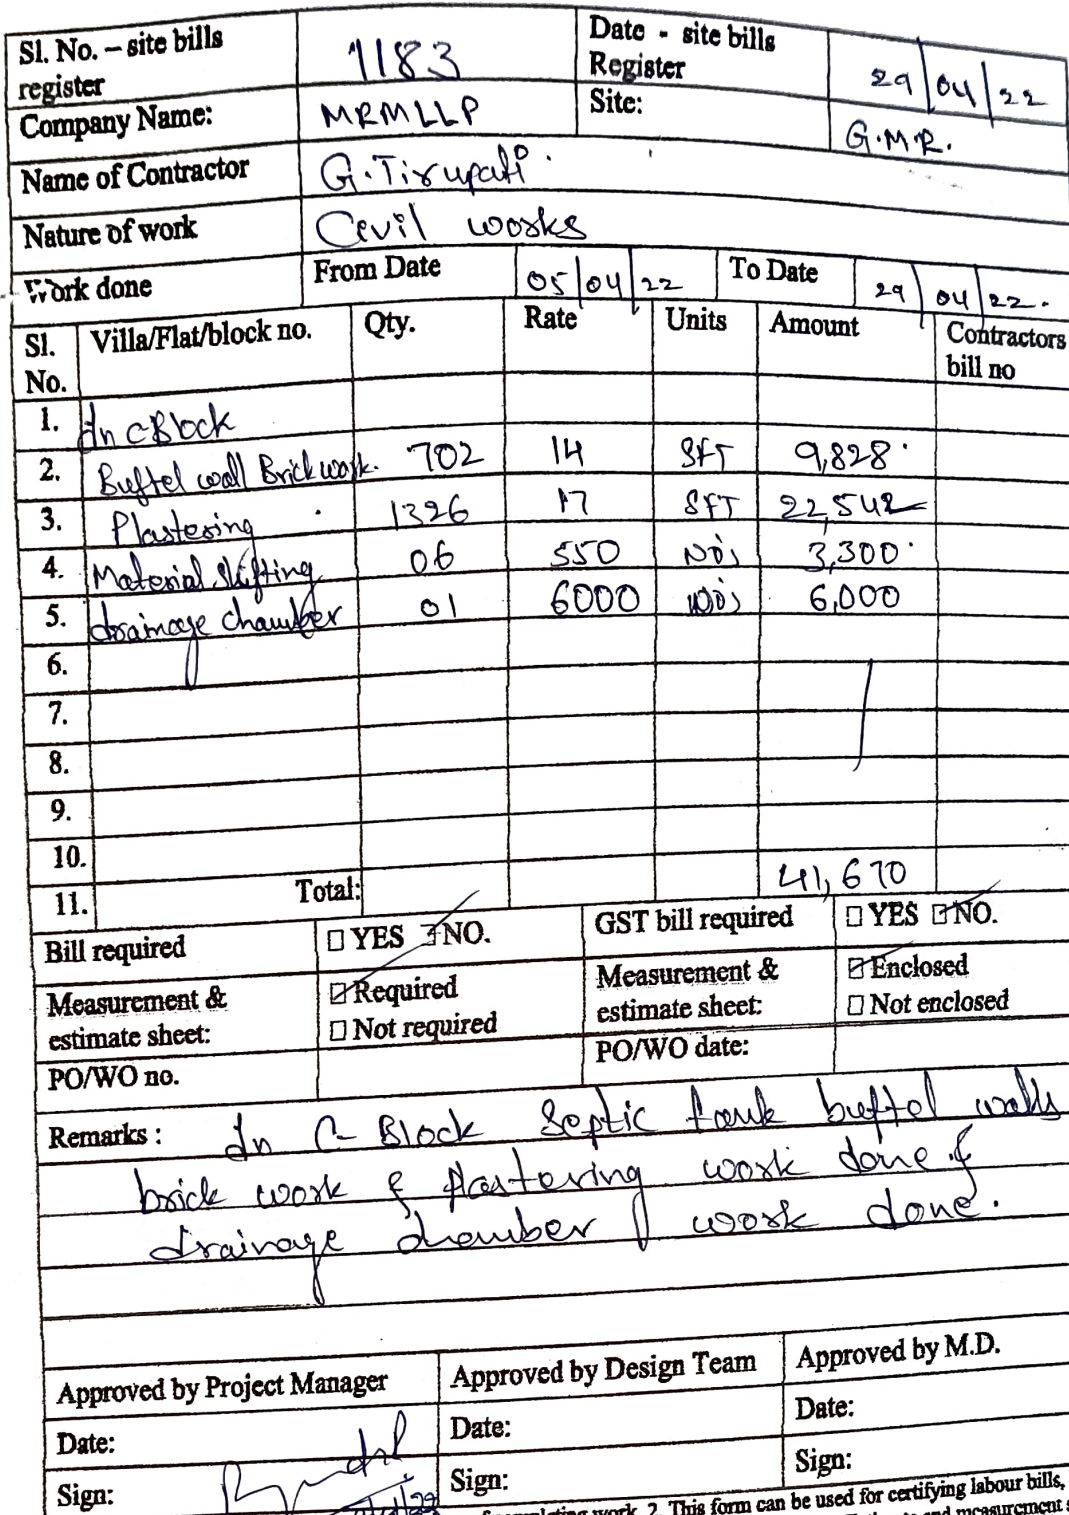 Sl. No. – site bills register 1183 Date - site bills Register 29/04/22
Company Name: MRMLLP Site: G.M.R.
Name of Contractor G.Tirupati.
Nature of work Civil works
Work done From Date 05/04/22 To Date 29/04/22.
Sl. No. Villa/Flat/block no. Qty. Rate Units Amount Contractors bill no
1. In C Block
2. Buftel wall Brick work. 702 14 SFT 9,828
3. Plastering 1326 17 SFT 22,542
4. Material shifting 06 550 Nos 3,300
5. drainage chamber 01 6000 Nos 6,000
6.
7.
8.
9.
10.
11. Total: 41,670
Bill required ☐ YES ☑ NO. GST bill required ☐ YES ☑ NO.
Measurement & estimate sheet: ☑ Required ☐ Not required Measurement & estimate sheet: ☑ Enclosed ☐ Not enclosed
PO/WO no. PO/WO date:
Remarks : In C-Block Septic tank buftel walls
brick work & plastering work done &
drainage chamber work done.
Approved by Project Manager Approved by Design Team Approved by M.D.
Date: Date: Date:
Sign: Sign: Sign:
work. 2. This form can be used for certifying labour bills,